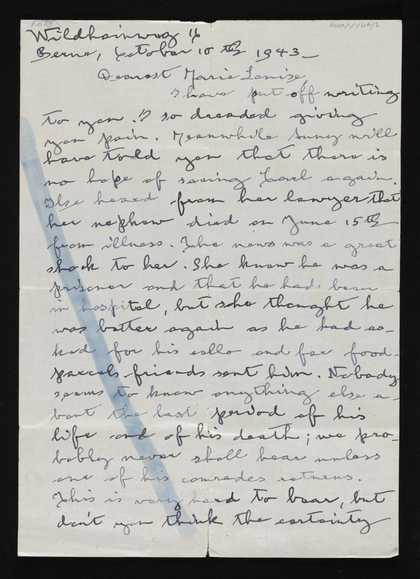 Wildhainweg 16
Berne, October 10th 1943_
Dearest Marie Louise,
I have put off writing
to you. I so dreaded giving
you pain. Meanwhile will
have told you that there is
no hope of seeing Carl again.
Ilse heard from her lawyer that
her nephew died on June 15th
from illness. The news was a great
shock to her. She knew he was a
prisoner and that he had been
in hospital, but she thought he
was better again as he had as-
ked for his cello and for food-
parcels friends sent him. Nobody
seems to know anything else a-
bout the last period of his
life and of his death; we pro-
bably never shall hear unless
one of his comrades returns.
This is very hard to bear, but
don't you think the certainty